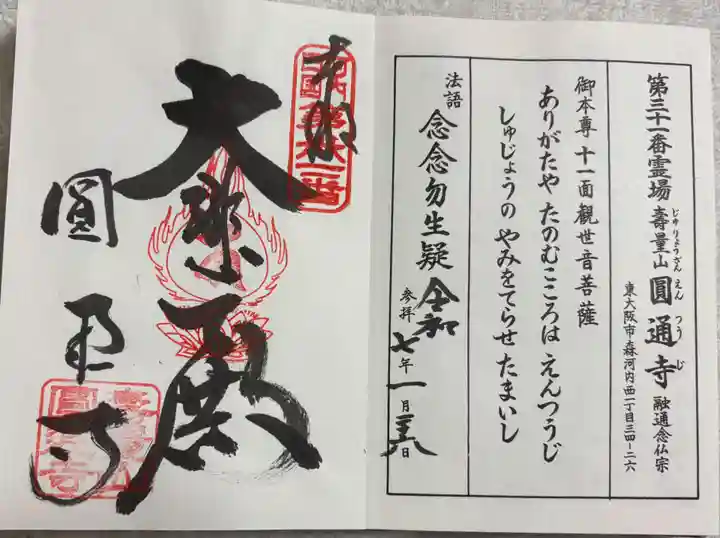 第三十一番霊場 壽量山 圓通寺 融通念仏宗
じゅりょうざん えんつうじ
東大阪市森河内西一丁目三四-二六
御本尊 十一面観世音菩薩
ありがたや たのむこころは えんつうじ
しゅじょうの やみをてらせ たまいし
法語 念念勿生疑
参拝 令和七年一月二十八日
奉拝
大悲殿
圓通寺